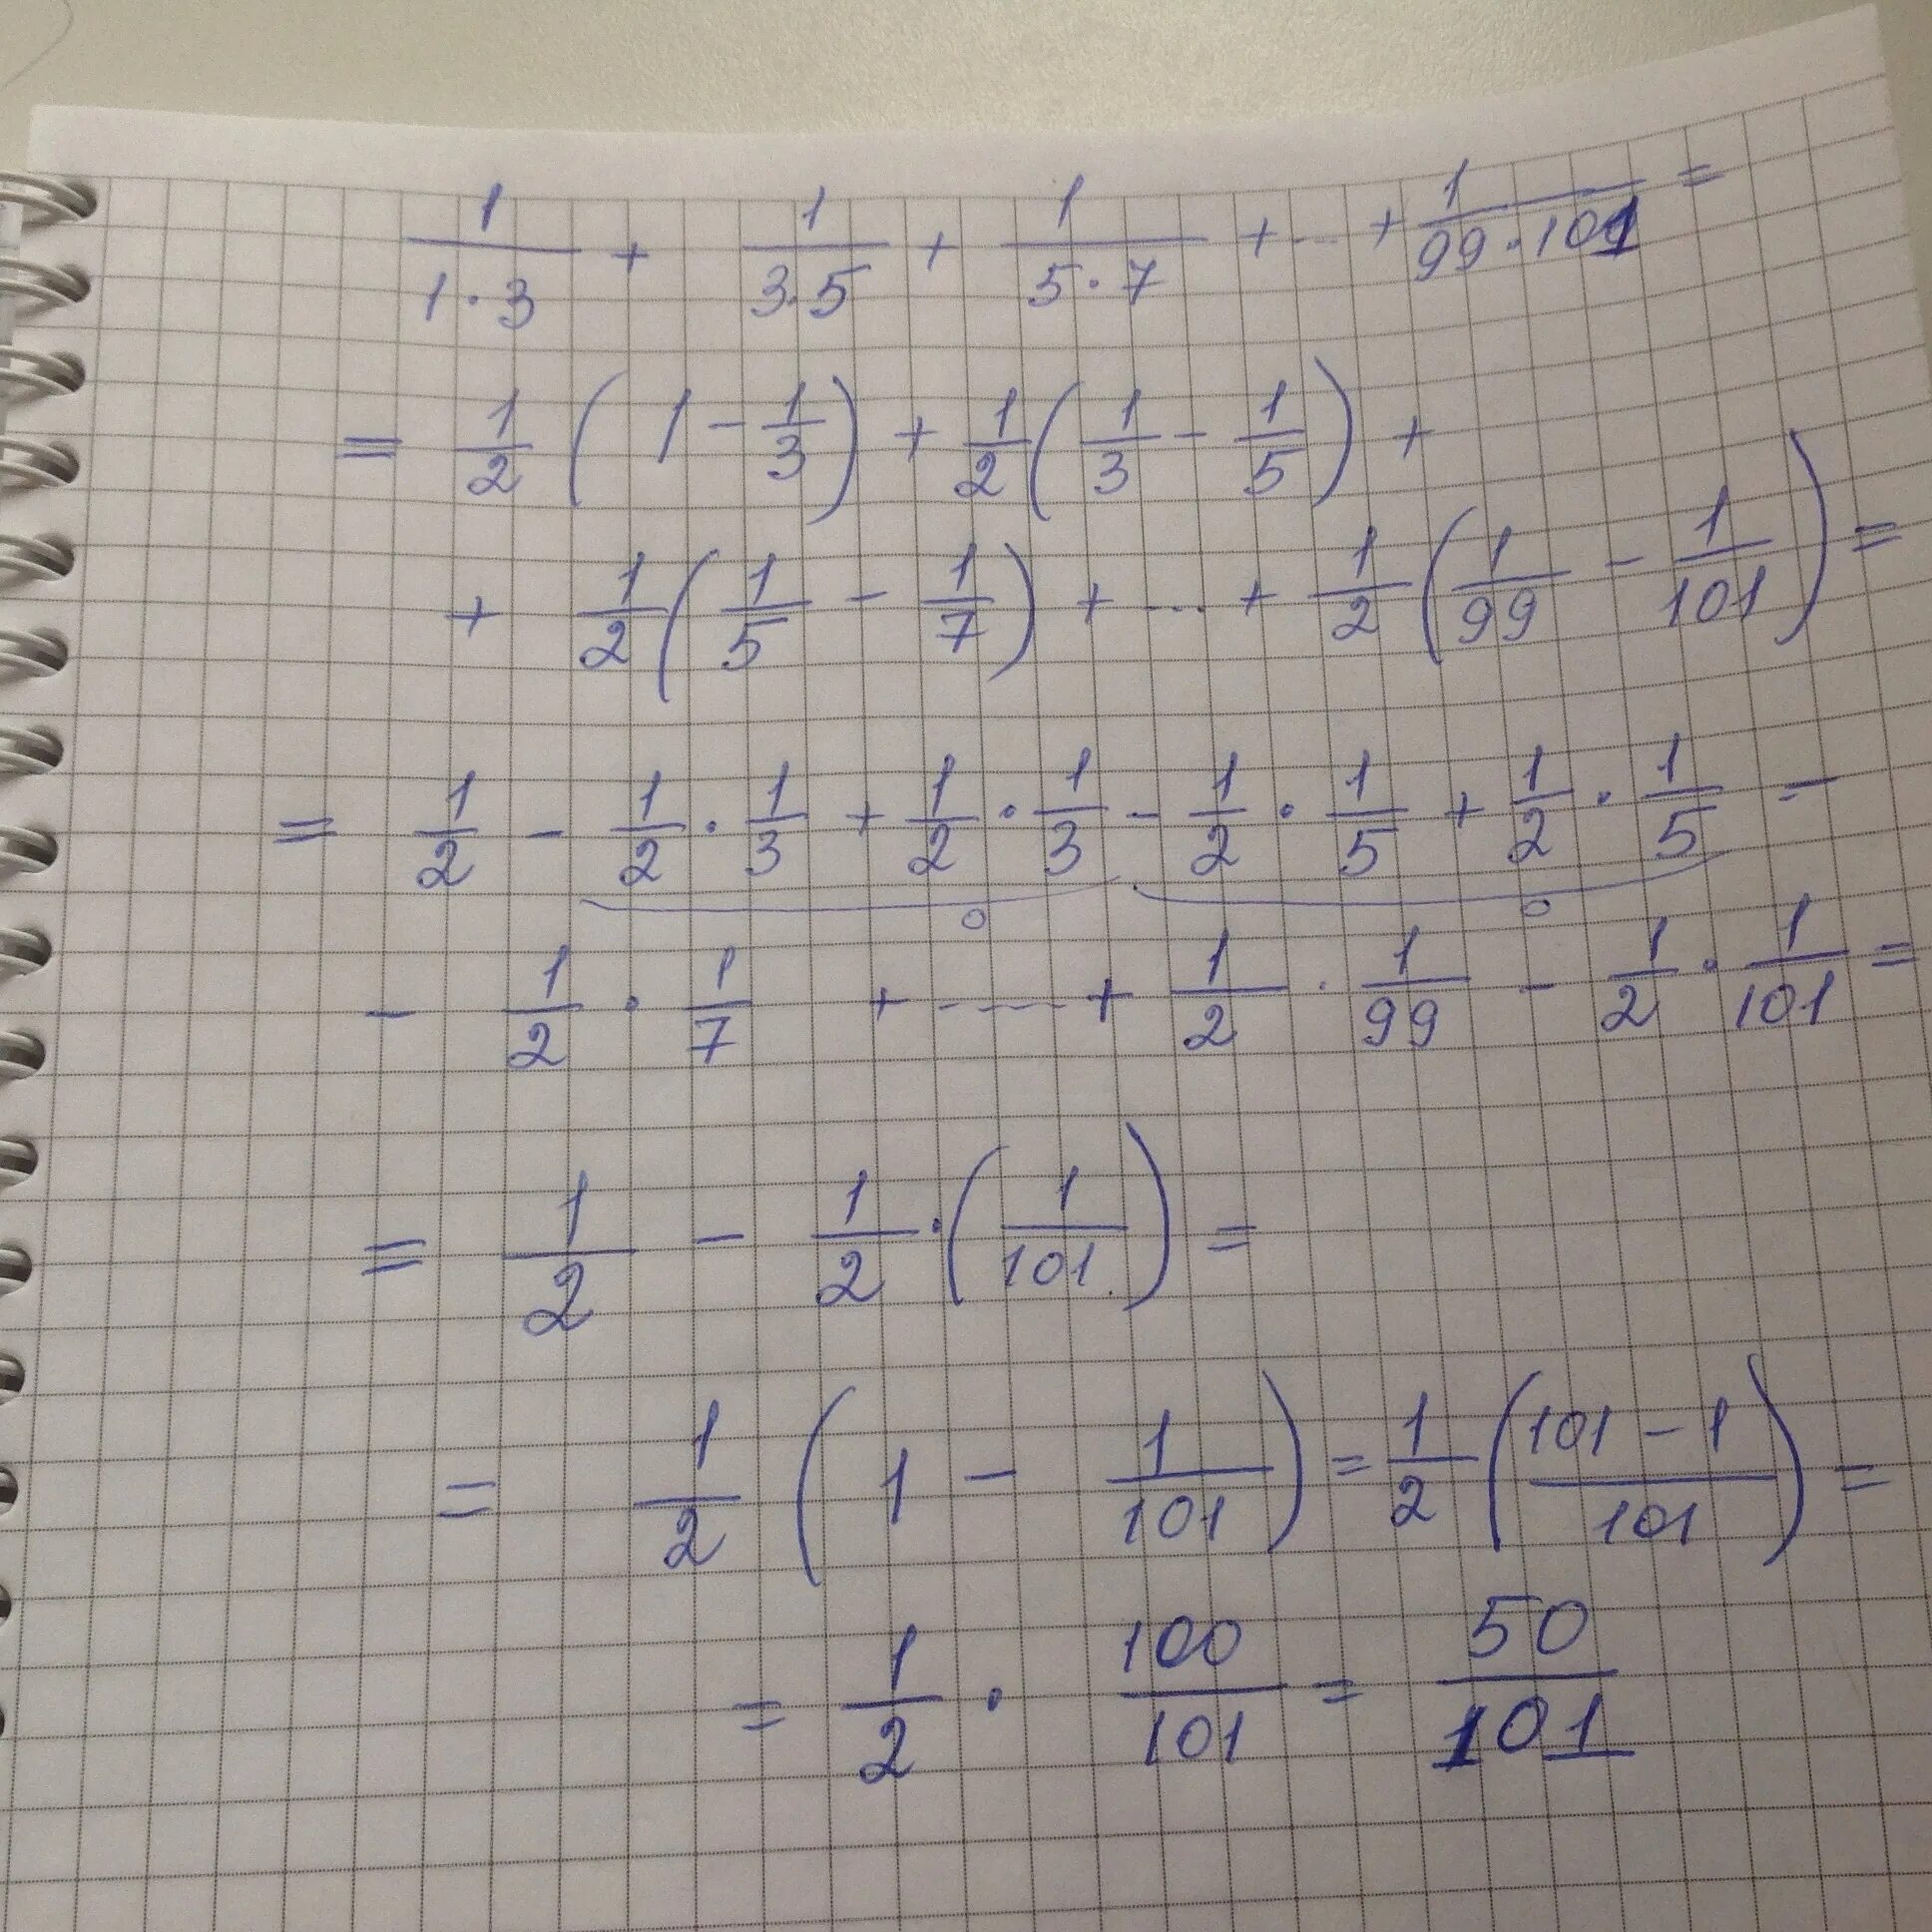 1/(1·3) + 1/(3·5) + 1/(5·7) + ... + 1/(99·101) =
= 1/2 (1 - 1/3) + 1/2 (1/3 - 1/5) +
+ 1/2 (1/5 - 1/7) + ... + 1/2 (1/99 - 1/101) =
= 1/2 - 1/2 · 1/3 + 1/2 · 1/3 - 1/2 · 1/5 + 1/2 · 1/5 -
0 0
- 1/2 · 1/7 + ... + 1/2 · 1/99 - 1/2 · 1/101 =
= 1/2 - 1/2 · (1/101) =
= 1/2 (1 - 1/101) = 1/2 ((101 - 1)/101) =
= 1/2 · 100/101 = 50/101